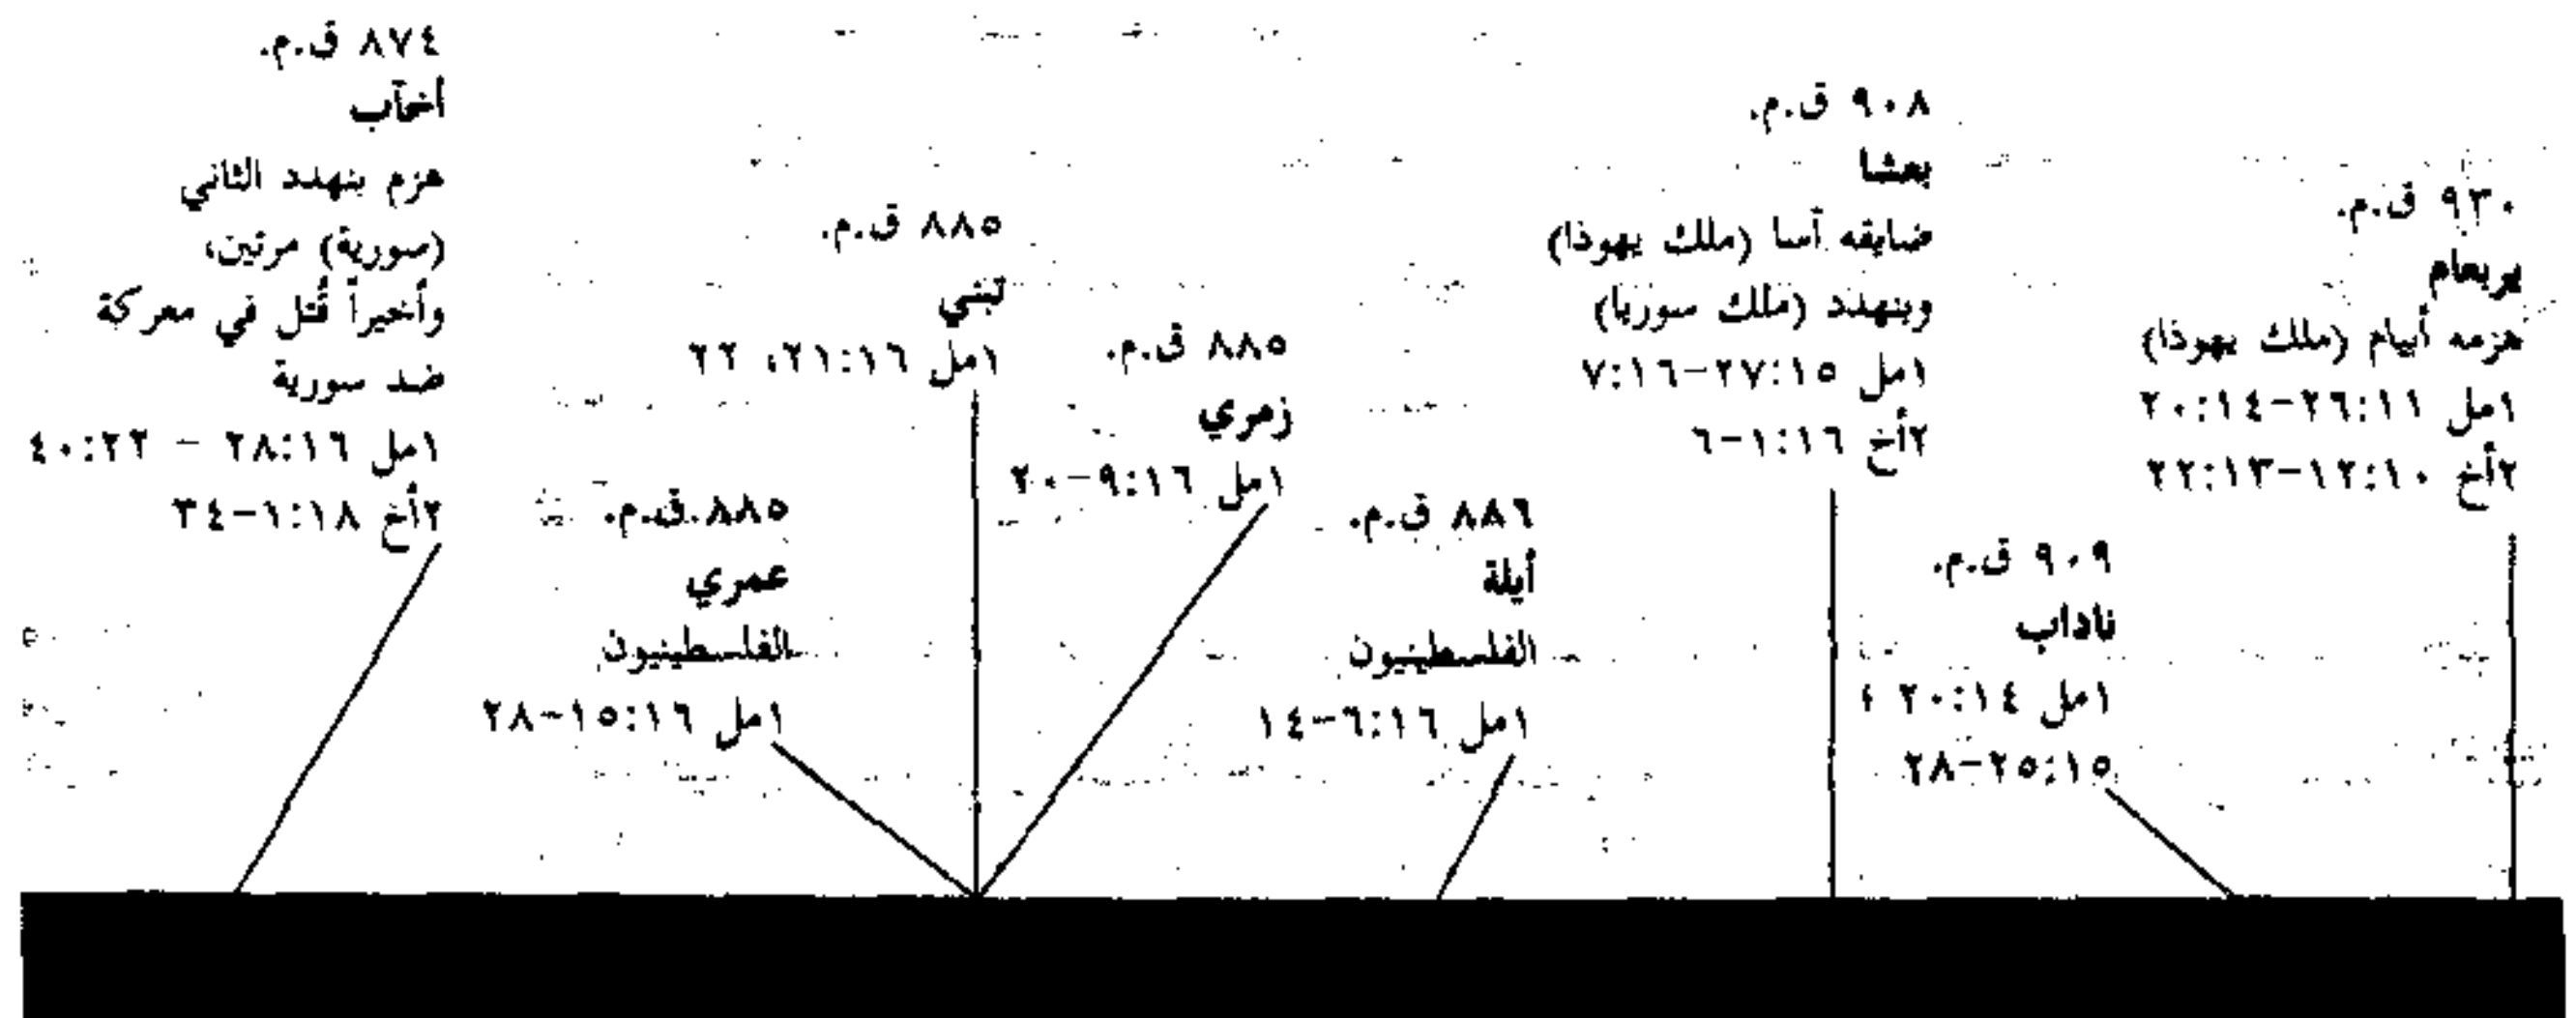 ٩٣٠ ق.م.
يربعام
هزمه أبيام (ملك يهوذا)
١مل ٢٦:١١-٢٠:١٤
٢أخ ١٢:١٠-٢٢:١٣
٩٠٩ ق.م.
ناداب
١مل ٢٠:١٤ ؛
٢٥:١٥-٢٨
٩٠٨ ق.م.
بعشا
ضايقه آسا (ملك يهوذا)
وبنهدد (ملك سوريا)
١مل ٢٧:١٥-٧:١٦
٢أخ ١:١٦-٦
٨٨٦ ق.م.
أيلة
الفلسطينيون
١مل ٦:١٦-١٤
٨٨٥ ق.م.
زمري
١مل ٩:١٦-٢٠
٨٨٥ ق.م.
تبني
١مل ٢١:١٦، ٢٢
٨٨٥ ق.م.
عمري
الفلسطينيون
١مل ١٥:١٦-٢٨
٨٧٤ ق.م.
أخآب
هزم بنهدد الثاني
(سورية) مرتين،
وأخيراً قُتل في معركة
ضد سورية
١مل ٢٨:١٦ - ٤٠:٢٢
٢أخ ١:١٨-٣٤